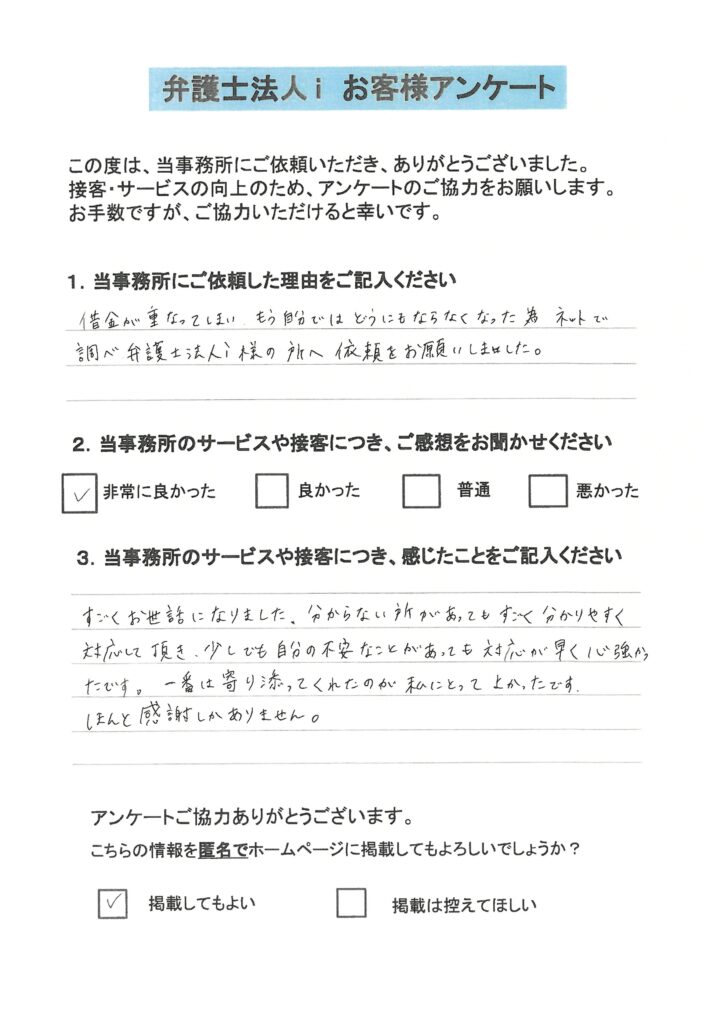 弁護士法人i お客様アンケート
この度は、当事務所にご依頼いただき、ありがとうございました。
接客・サービスの向上のため、アンケートのご協力をお願いします。
お手数ですが、ご協力いただけると幸いです。
1. 当事務所にご依頼した理由をご記入ください
借金が重なってしまい、もう自分ではどうにもならなくなった為 ネットで
調べ弁護士法人i様の所へ依頼をお願いしました。
2. 当事務所のサービスや接客につき、ご感想をお聞かせください
非常に良かった 良かった 普通 悪かった
3. 当事務所のサービスや接客につき、感じたことをご記入ください
すごくお世話になりました、分からない所があってもすごく分かりやすく
対応して頂き、少しでも自分の不安なことがあっても対応が早く心強かっ
たです。一番は寄り添ってくれたのが私にとって上かったです.
ほんと感謝しかありません。
アンケートご協力ありがとうございます。
こちらの情報を匿名でホームページに掲載してもよろしいでしょうか?
掲載してもよい 掲載は控えてほしい